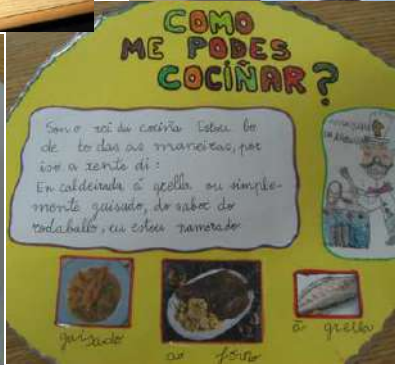 COMO
ME PODES
COCIÑAR?
Son o rei da cociña Estou bo
de todas as maneiras, por
iso a xente di:
En caldeirada á grella ou simple-
mente guisado, do sabor do
rodaballo, eu estou namorado
guisado
ao forno
á grella